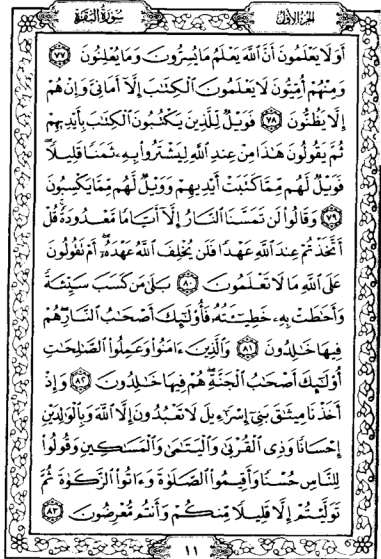 سورة البقرة
الجزء الأول
أَوَلَا يَعْلَمُونَ أَنَّ ٱللَّهَ يَعْلَمُ مَا يُسِرُّونَ وَمَا يُعْلِنُونَ ٧٧
وَمِنْهُمْ أُمِّيُّونَ لَا يَعْلَمُونَ ٱلْكِتَٰبَ إِلَّآ أَمَانِىَّ وَإِنْ هُمْ
إِلَّا يَظُنُّونَ ٧٨ فَوَيْلٌ لِّلَّذِينَ يَكْتُبُونَ ٱلْكِتَٰبَ بِأَيْدِيهِمْ
ثُمَّ يَقُولُونَ هَٰذَا مِنْ عِندِ ٱللَّهِ لِيَشْتَرُوا۟ بِهِۦ ثَمَنًا قَلِيلًا ۖ
فَوَيْلٌ لَّهُم مِّمَّا كَتَبَتْ أَيْدِيهِمْ وَوَيْلٌ لَّهُم مِّمَّا يَكْسِبُونَ
٧٩ وَقَالُوا۟ لَن تَمَسَّنَا ٱلنَّارُ إِلَّآ أَيَّامًا مَّعْدُودَةً ۚ قُلْ
أَتَّخَذْتُمْ عِندَ ٱللَّهِ عَهْدًا فَلَن يُخْلِفَ ٱللَّهُ عَهْدَهُۥٓ ۖ أَمْ تَقُولُونَ
عَلَى ٱللَّهِ مَا لَا تَعْلَمُونَ ٨٠ بَلَىٰ مَن كَسَبَ سَيِّئَةً
وَأَحَٰطَتْ بِهِۦ خَطِيٓـَٔتُهُۥ فَأُو۟لَٰٓئِكَ أَصْحَٰبُ ٱلنَّارِ ۖ هُمْ
فِيهَا خَٰلِدُونَ ٨١ وَٱلَّذِينَ ءَامَنُوا۟ وَعَمِلُوا۟ ٱلصَّٰلِحَٰتِ
أُو۟لَٰٓئِكَ أَصْحَٰبُ ٱلْجَنَّةِ ۖ هُمْ فِيهَا خَٰلِدُونَ ٨٢ وَإِذْ
أَخَذْنَا مِيثَٰقَ بَنِىٓ إِسْرَٰٓءِيلَ لَا تَعْبُدُونَ إِلَّا ٱللَّهَ وَبِٱلْوَٰلِدَيْنِ
إِحْسَانًا وَذِى ٱلْقُرْبَىٰ وَٱلْيَتَٰمَىٰ وَٱلْمَسَٰكِينِ وَقُولُوا۟
لِلنَّاسِ حُسْنًا وَأَقِيمُوا۟ ٱلصَّلَوٰةَ وَءَاتُوا۟ ٱلزَّكَوٰةَ ثُمَّ
تَوَلَّيْتُمْ إِلَّا قَلِيلًا مِّنكُمْ وَأَنتُم مُّعْرِضُونَ ٨٣
١١